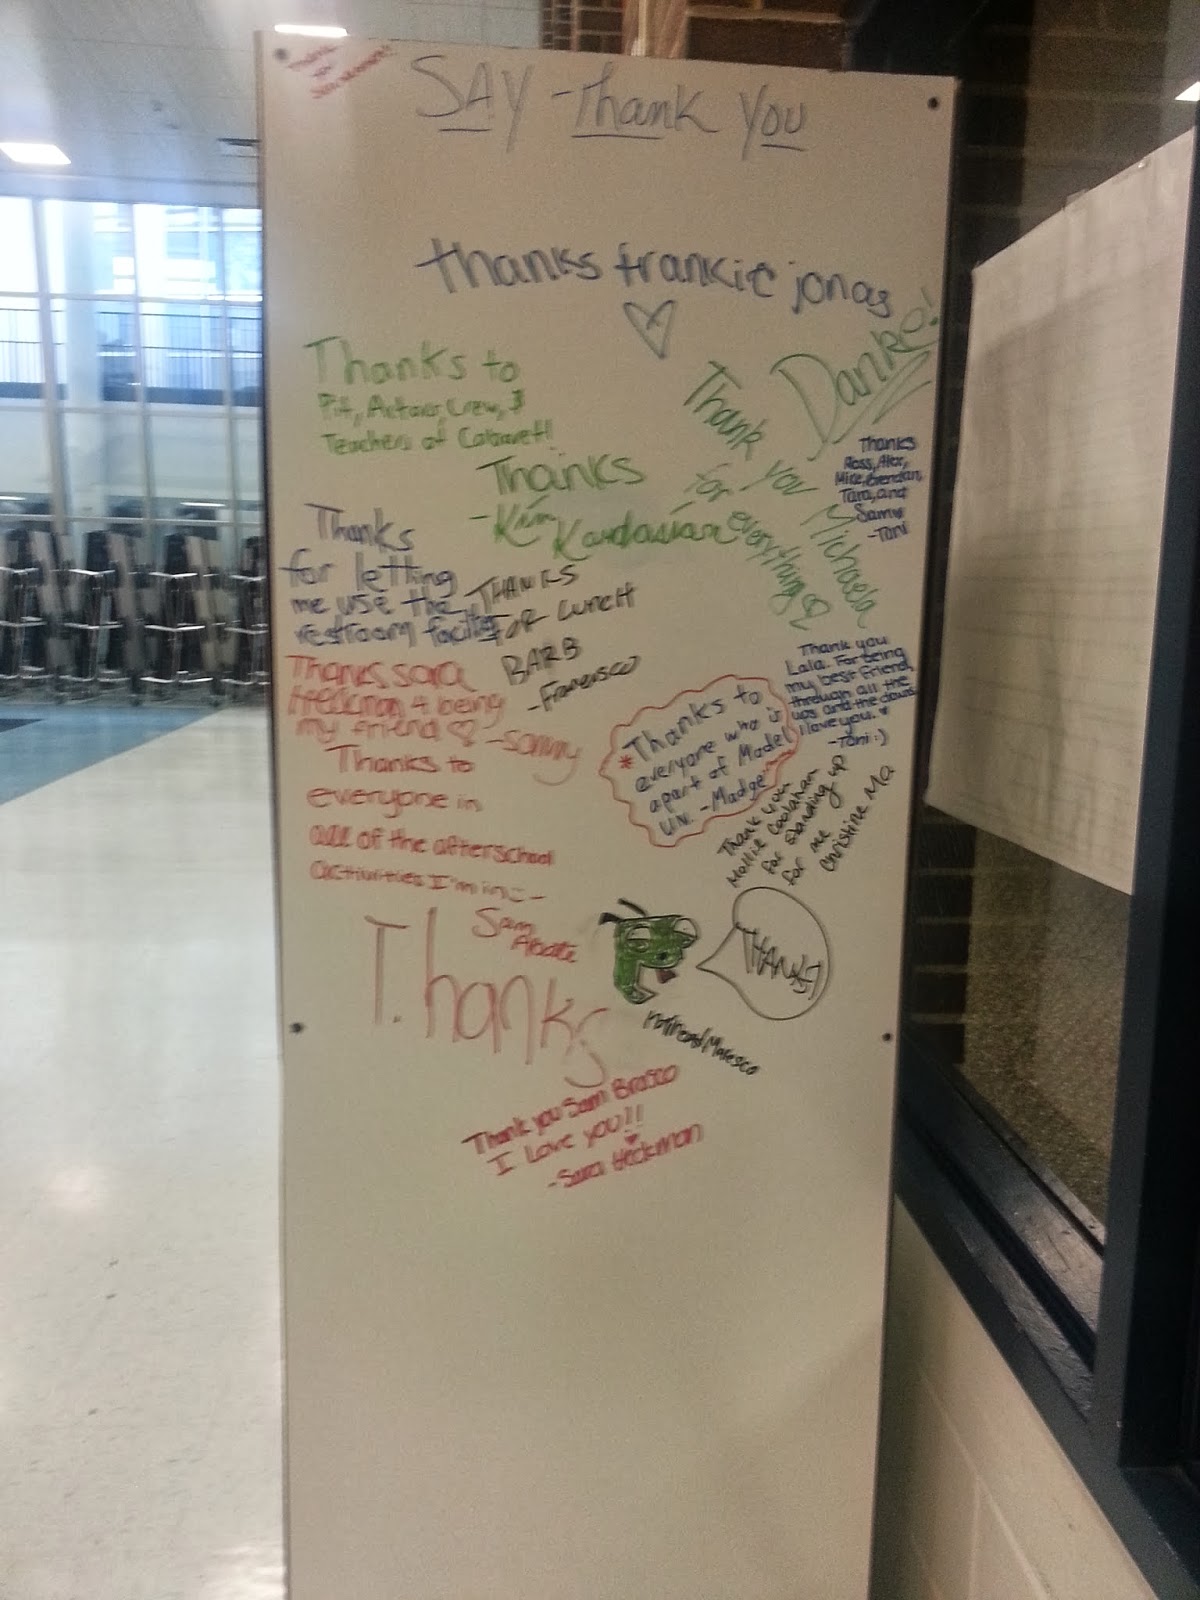 SAY - Thank You
thanks frankie jonas
Danke!
Thanks to
Pit, Actors, Crew, &
Teachers of Cabaret!
Thank you
for
everything
Michaela
Thanks
Ross, Alex,
Mike, Brendan,
Tara, and
Sam
-Toni
Thanks
-Kim
Kardasian
Thanks
for letting
me use the
restroom
THANKS
FOR LUNCH
BARB
-Francesco
Thanks sara
Heckman 4 being
my friend -sonny
Thank you
Lala. For being
my best friend,
through all the
ups and the downs
I love you.
-Toni :)
*Thanks to
everyone who is
apart of Model
U.N. -Madge
Thanks to
everyone in
all of the afterschool
activities I'm in
Sam
Abate
Thank you
Mollie Coolahan
for standing up
for me
Christine Ma
T.hanks
THANKS!
Thank you Sam Brasco
I love you!!
-Sara Heckman